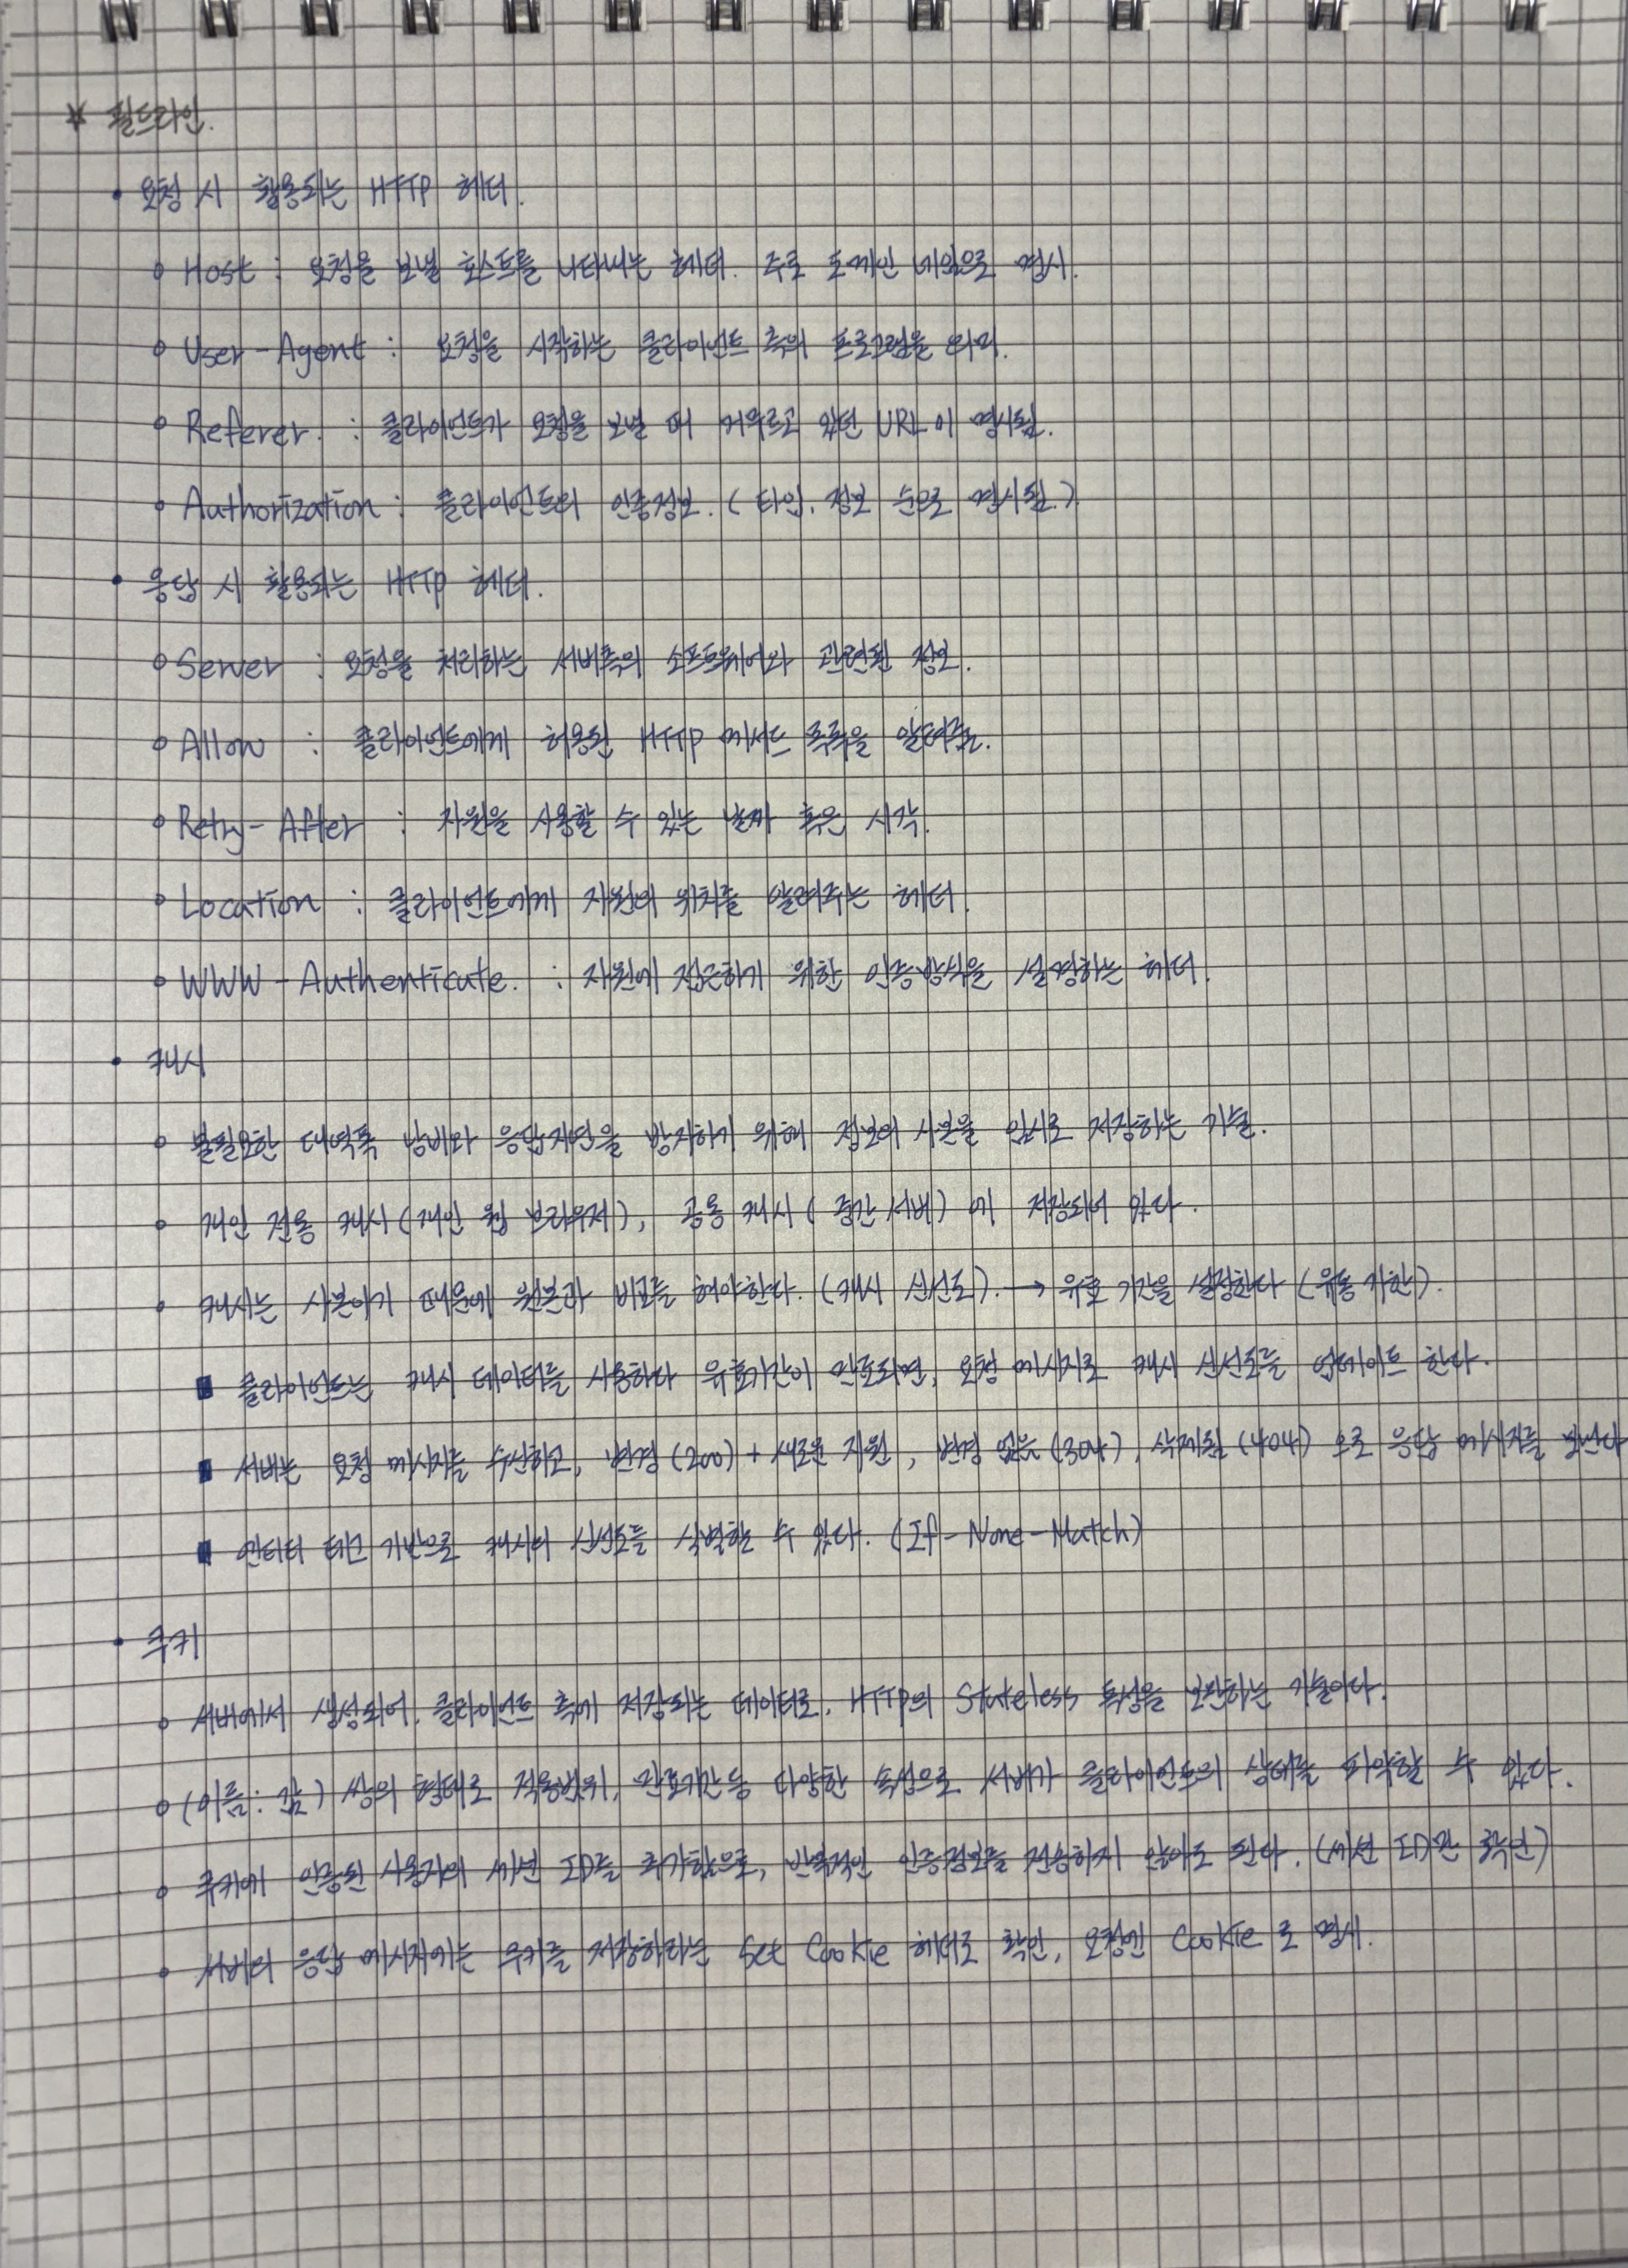 * 필드라인.
• 요청 시 활용되는 HTTP 헤더.
o Host : 요청을 보낼 호스트를 나타내는 헤더. 주로 도메인 네임으로 명시.
o User-Agent : 요청을 시작하는 클라이언트 측의 프로그램을 의미.
o Referer. : 클라이언트가 요청을 보낼 때 머무르고 있던 URL이 명시됨.
o Authorization : 클라이언트의 인증정보. (타입, 정보 순으로 명시됨.)
• 응답 시 활용되는 HTTP 헤더.
o Server : 요청을 처리하는 서버측의 소프트웨어와 관련된 정보.
o Allow : 클라이언트에게 허용된 HTTP 메서드 목록을 알려줌.
o Retry-After : 자원을 사용할 수 있는 날짜 혹은 시각.
o Location : 클라이언트에게 자원의 위치를 알려주는 헤더.
o WWW-Authenticate. : 자원에 접근하기 위한 인증방식을 설명하는 헤더.
• 캐시
o 불필요한 대역폭 낭비와 응답지연을 방지하기 위해 정보의 사본을 임시로 저장하는 기술.
o 개인 전용 캐시(개인 웹 브라우저), 공용 캐시(중간 서버)에 저장되어 있다.
o 캐시는 사본이기 때문에 원본과 비교를 해야한다. (캐시 신선도). → 유효 기간을 설정한다 (유통 기한).
■ 클라이언트는 캐시 데이터를 사용하다 유효기간이 만료되면, 요청 메시지로 캐시 신선도를 업데이트 한다.
■ 서버는 요청 메시지를 수신하고, 변경(200) + 새로운 자원, 변경 없음(304), 삭제됨(404) 으로 응답 메시지를 보낸다
■ 엔티티 태그 기반으로 캐시의 신선도를 식별할 수 있다. (If-None-Match)
• 쿠키
o 서버에서 생성되어, 클라이언트 측에 저장되는 데이터로, HTTP의 Stateless 특성을 보완하는 기술이다.
o (이름: 값) 쌍의 형태로 적용범위, 만료기간등 다양한 속성으로 서버가 클라이언트의 상태를 파악할 수 있다.
o 쿠키에 인증된 사용자의 세션 ID를 추가함으로, 반복적인 인증정보를 전송하지 않아도 된다. (세션 ID만 확인)
o 서버의 응답 메시지에는 쿠키를 저장하라는 Set Cookie 헤더로 확인, 요청엔 Cookie로 명시.